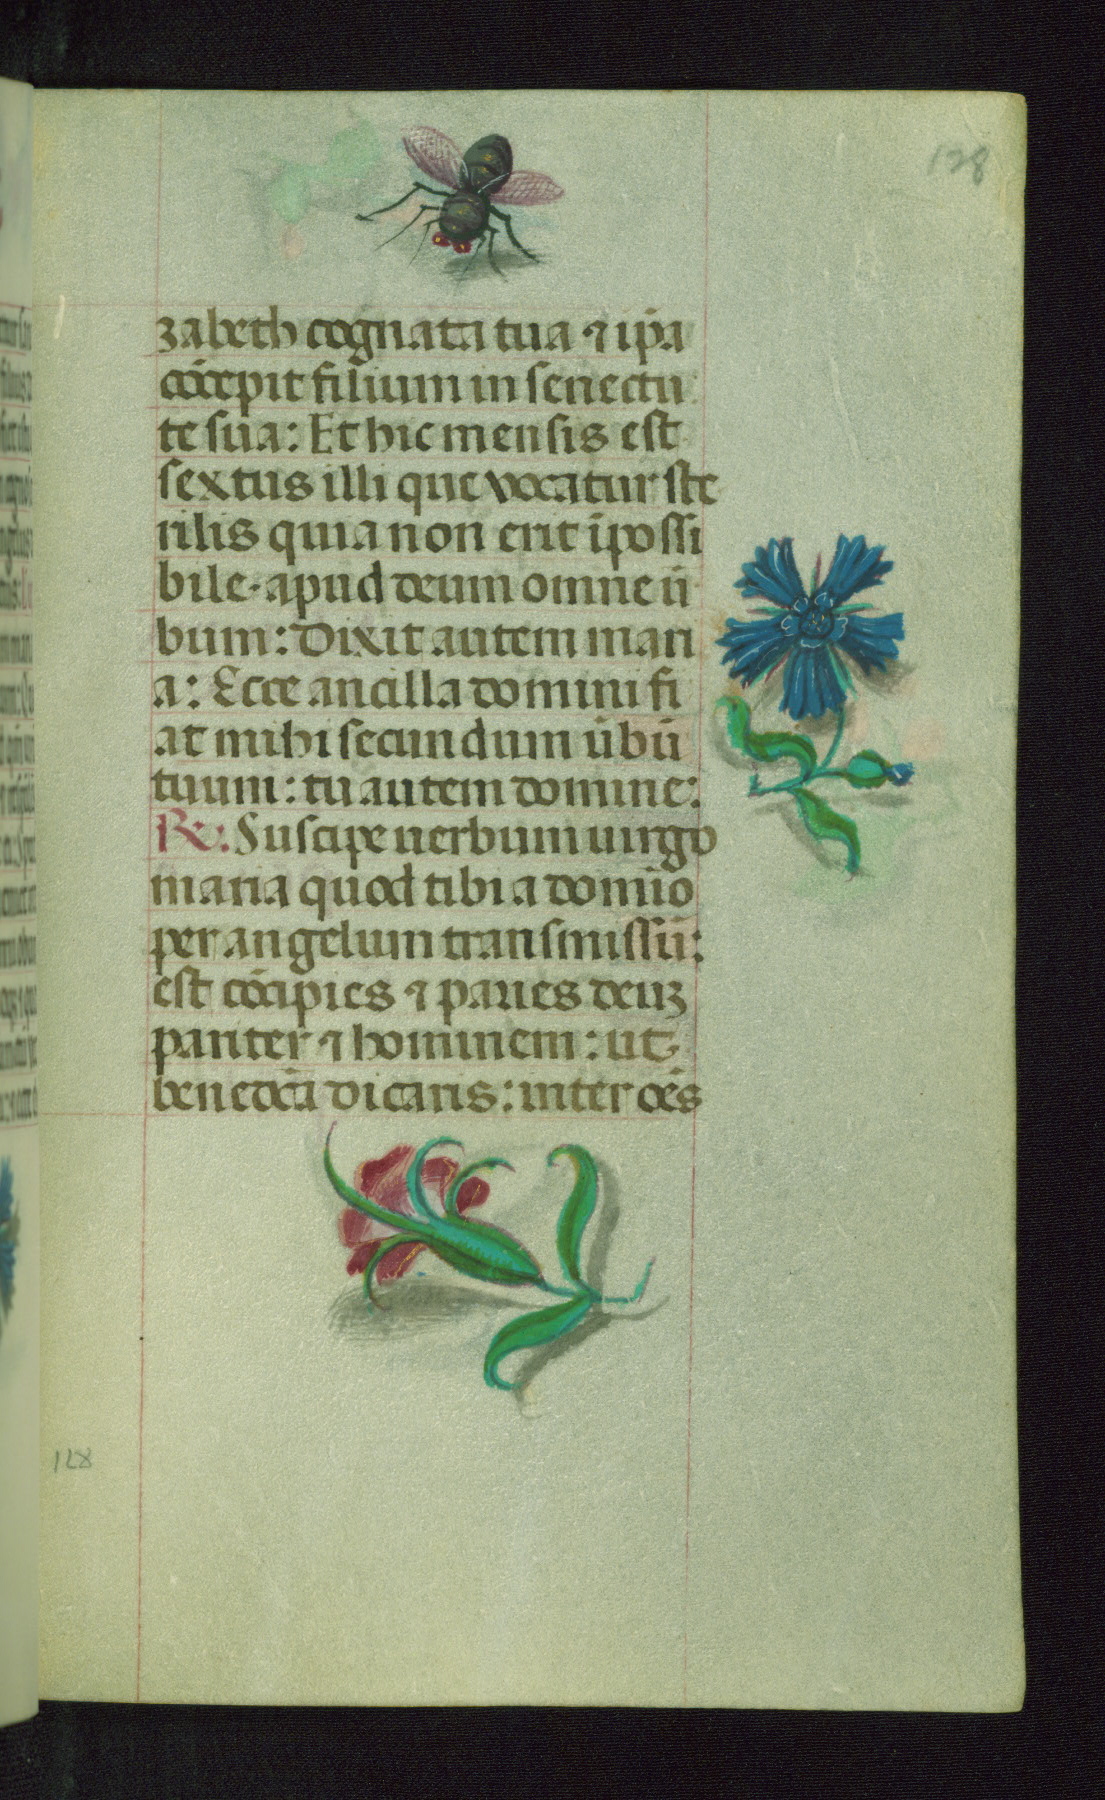 128
zabeth cognata tua ⁊ ip̄a
cōcepit filium in senectu
te sua: Et hic mensis est
sextus illi que vocatur ste
rilis quia non erit īpossi
bile. apud deum omne ū
bum: Dixit autem mari
a: Ecce ancilla domini fi
at mihi secundum ūbū
tuum: tu autem domine:
R̄: Suscipe uerbum uirgo
maria quod tibi a domīo
per angelum transmissū:
est cōcipies ⁊ paries deuz
pariter ⁊ hominem: ut
benedc̄a dicaris: inter oēs
128